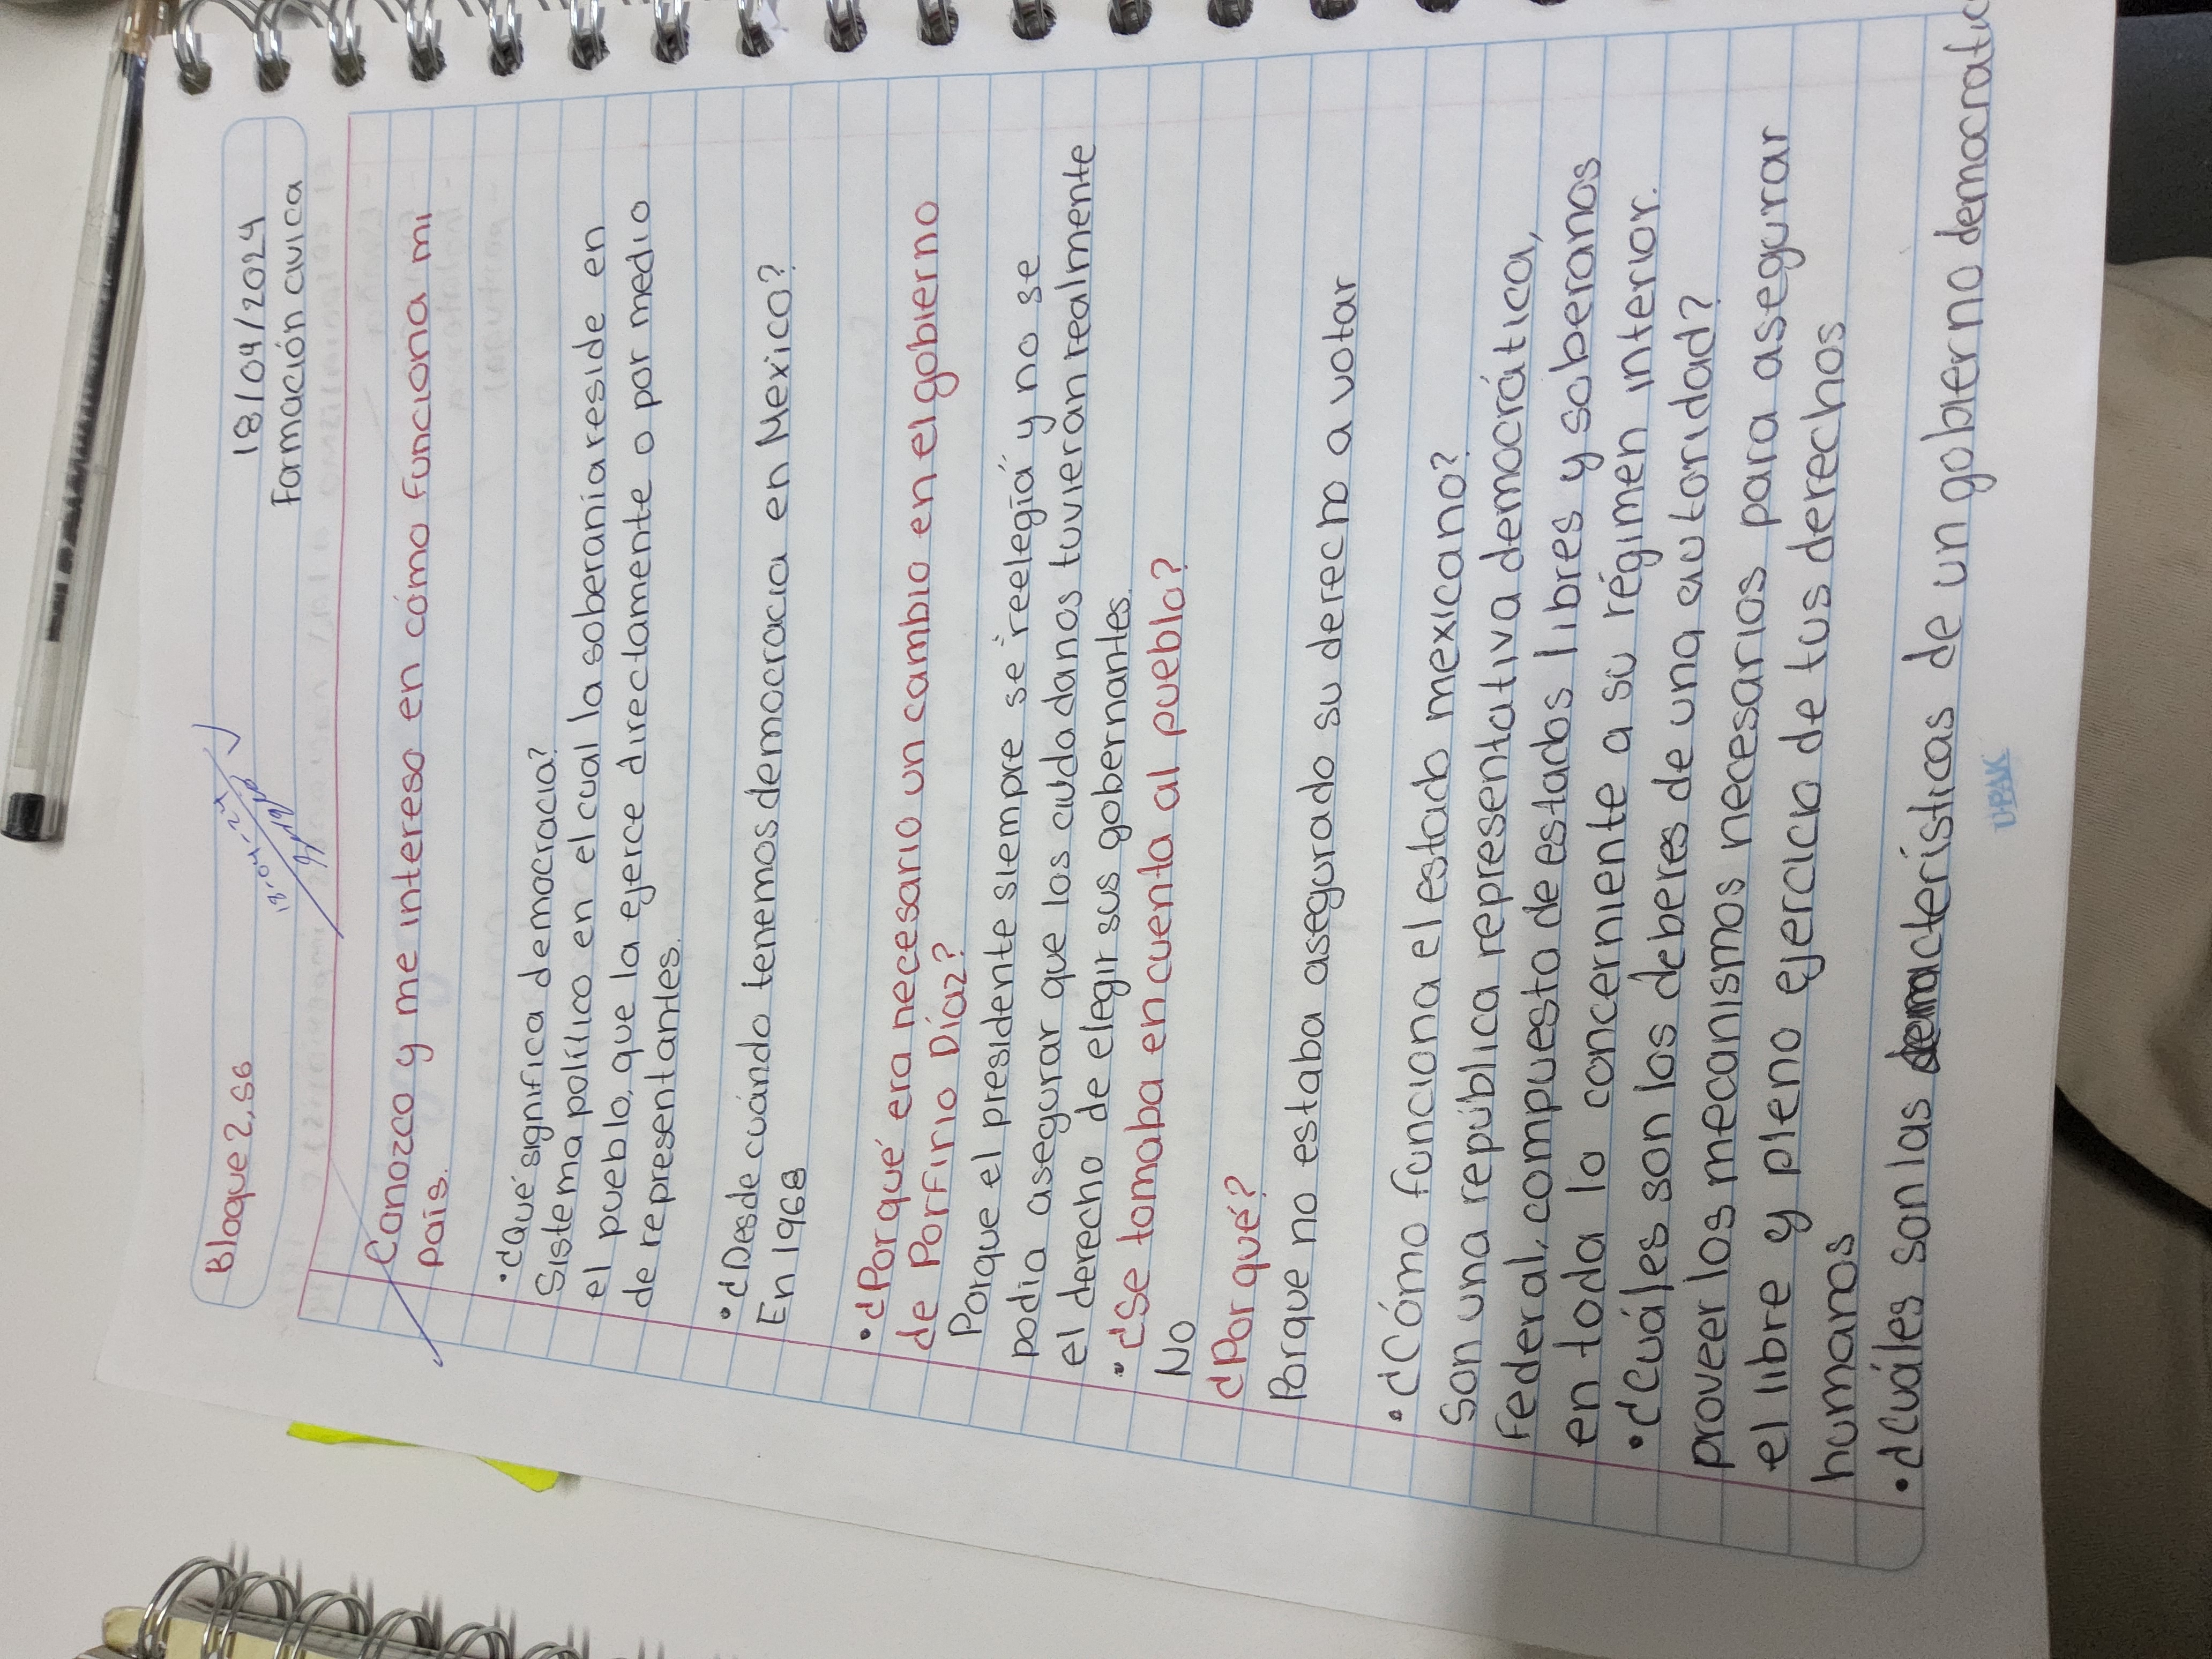 Bloque 2, S6
18/04/2024
Formación civica
Conozco y me intereso en cómo funciona mi
país.
• ¿Qué significa democracia?
Sistema político en el cual la soberanía reside en
el pueblo, que la ejerce directamente o por medio
de representantes.
• ¿Desde cuándo tenemos democracia en Mexico?
En 1968
• ¿Porqué era necesario un cambio en el gobierno
de Porfirio Díaz?
Porque el presidente siempre se reelegía y no se
podia asegurar que los ciudadanos tuvieran realmente
el derecho de elegir sus gobernantes.
• ¿Se tomaba en cuenta al pueblo?
No
¿Por qué?
Porque no estaba asegurado su derecho a votar
• ¿Cómo funciona el estado mexicano?
Son una república representativa democrática,
Federal, compuesta de estados libres y soberanos
en todo lo concerniente a su régimen interior.
• ¿Cuáles son los deberes de una autoridad?
proveer los mecanismos necesarios para asegurar
el libre y pleno ejercicio de tus derechos
humanos
• ¿Cuáles son las características de un gobierno democratic